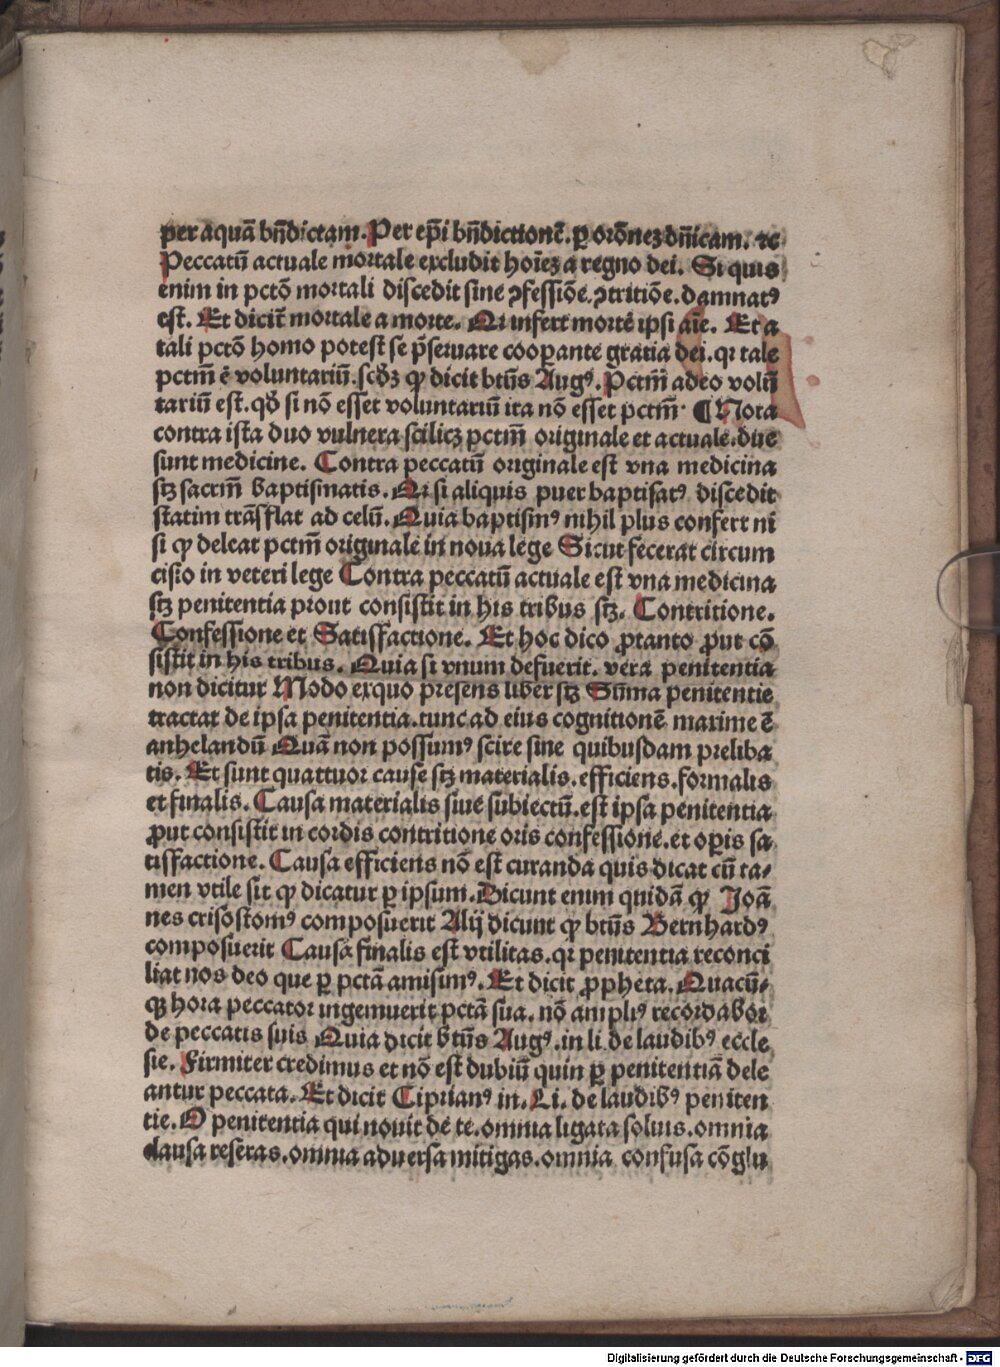 per aquā bñdictam. Per ep̄i bñdictionē. ꝑ orōnez dñicam. ⁊c
Peccatū actuale mortale excludit hoīez a regno dei. Si quis
enim in pctō mortali discedit sine ꝯfessiōe. ꝯtritiōe. damnatꝰ
est. Et dicit̄ mortale a morte. Qr infert mortē ipsi aīe. Et a
tali pctō homo potest se p̄seruare cooꝑante gratia dei. qr tale
pctm̄ ē voluntariū. scḋz ꝙ dicit btūs Augꝰ. Pctm̄ adeo volū
tariū est. qḋ si nō esset voluntariū ita nō esset pctm̄. ¶ Nota
contra ista duo vulnera scilicz pctm̄ originale et actuale. due
sunt medicine. Contra peccatū originale est vna medicina
stz sacrm̄ baptismatis. Qr si aliquis puer baptisatꝰ discedit
statim trāsflat ad celū. Quia baptismꝰ nihil plus confert ni
si ꝙ deleat pctm̄ originale in noua lege Sicut fecerat circum
cisio in veteri lege Contra peccatū actuale est vna medicina
stz penitentia prout consistit in his tribus stz. Contritione.
Confessione et Satisfactione. Et hoc dico ꝓtanto ꝓut cō
sistit in his tribus. Quia si vnum defuerit. vera penitentia
non dicitur Modo exquo presens liber stz Sūma penitentie
tractat de ipsa penitentia. tunc ad eius cognitionē maxime ē
anhelandū Quā non possumꝰ scire sine quibusdam preliba
tis. Et sunt quattuor cause stz materialis. efficiens. formalis
et finalis. Causa materialis siue subiectū. est ipsa penitentia
ꝓut consistit in cordis contritione oris confessione. et oꝑis sa
tisfactione. Causa efficiens nō est curanda quis dicat cū ta-
men vtile sit ꝙ dicatur ꝑ ipsum. Dicunt enim quidā ꝙ Joā
nes crisostomꝰ composuerit Alij dicunt ꝙ btūs Bernhardꝰ
composuerit Causa finalis est vtilitas. qr penitentia reconci
liat nos deo que ꝑ pctā amisimꝰ. Et dicit ꝓpheta. Quacū-
qꝫ hora peccator ingemuerit pctā sua. nō ampliꝰ recordabor
de peccatis suis Quia dicit btūs Augꝰ. in li. de laudibꝰ eccle
sie. Firmiter credimus et nō est dubiū quin ꝑ penitentiā dele
antur peccata. Et dicit Ciprianꝰ in. Li. de laudibꝰ peniten
tie. O penitentia qui nouit de te. omnia ligata soluis. omnia
clausa reseras. omnia aduersa mitigas. omnia confusa cōglu
Digitalisierung gefördert durch die Deutsche Forschungsgemeinschaft - DFG